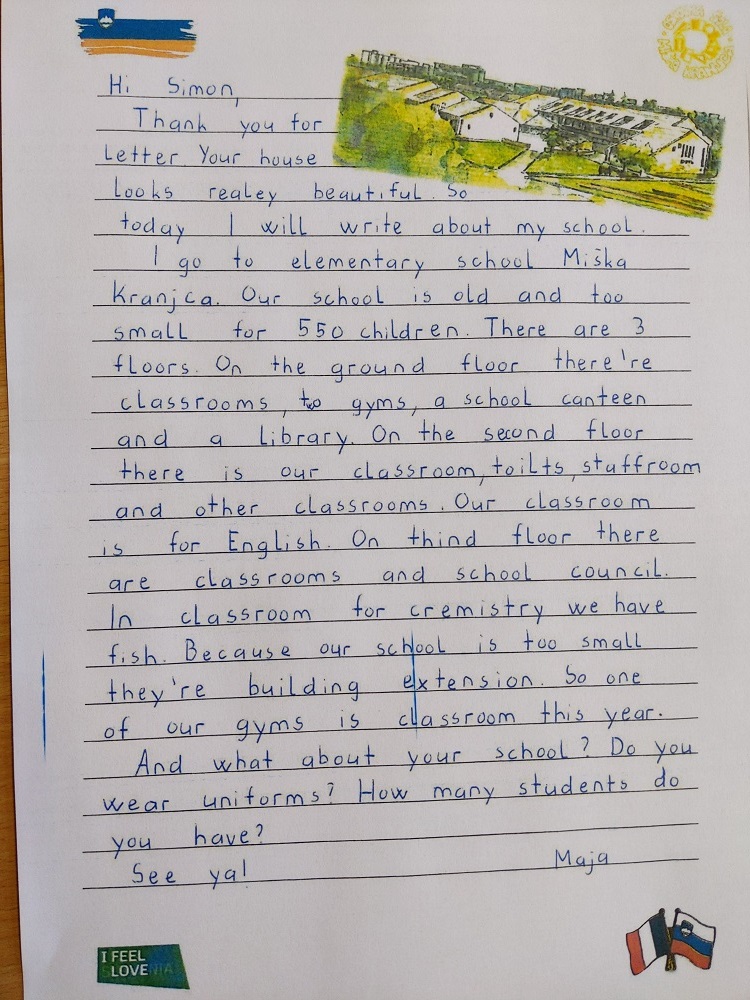 Hi Simon,
Thank you for
letter. Your house
looks realey beautiful. So
today I will write about my school.
I go to elementary school Miška
Kranjca. Our school is old and too
small for 550 children. There are 3
floors. On the ground floor there're
classrooms, two gyms, a school canteen
and a library. On the second floor
there is our classroom, toilts, staffroom
and other classrooms. Our classroom
is for English. On thind floor there
are classrooms and school council.
In classroom for cremistry we have
fish. Because our school is too small
they're building extension. So one
of our gyms is classroom this year.
And what about your school? Do you
wear uniforms? How many students do
you have?
See ya!
Maja
I FEEL
SLOVENIA